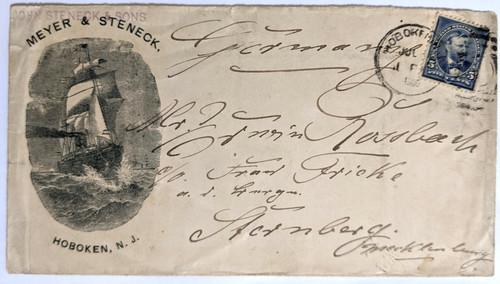 JOHN STENECK & SONS
MEYER & STENECK,
HOBOKEN, N. J.
Germany
HOBOKEN
5 5
Mr. Erwin Rossbach
c/o Frau Fricke
a. d. Berge
Sternberg.
Mecklenburg